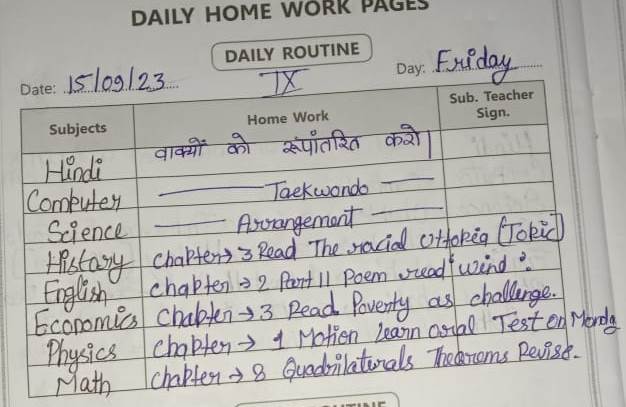 DAILY HOME WORK PAGES
DAILY ROUTINE
IX
Date: 15/09/23 Day: Friday
Subjects Home Work Sub. Teacher Sign.
Hindi वाक्यों को रूपांतरित करो।
Computer Taekwondo
Science Arrangement
History Chapter → 3 Read The racial Uttopia (Topic)
English Chapter → 2 Part 11 Poem read "Wind".
Economics Chapter → 3 Read Poverty as challenge.
Physics Chapter → 1 Motion learn oral Test on Monda
Math Chapter → 8 Quadrilaterals Thearoms Revise.